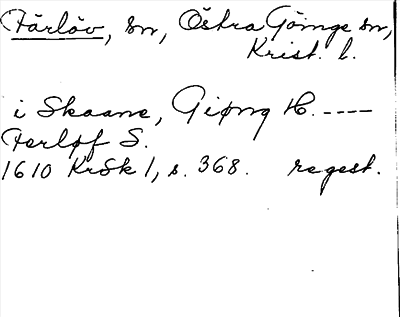 Färlöv, sn, Östra Göinge sn,
Krist. l.
i Skaane, Giøng H. ----
Ferløf S.
1610 KrSk 1, s. 368. regest.